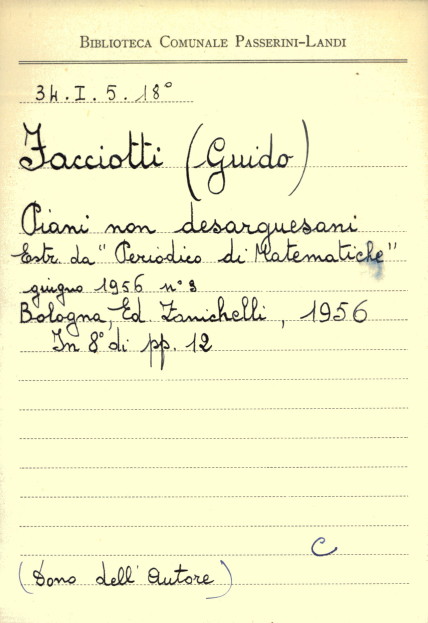 BIBLIOTECA COMUNALE PASSERINI-LANDI
34. I. 5. 18°
Facciotti (Guido)
Piani non desarguesani
Estr. da "Periodico di Matematiche"
giugno 1956 n° 3
Bologna, Ed. Zanichelli, 1956
In 8° di pp. 12
C
(Dono dell'Autore)